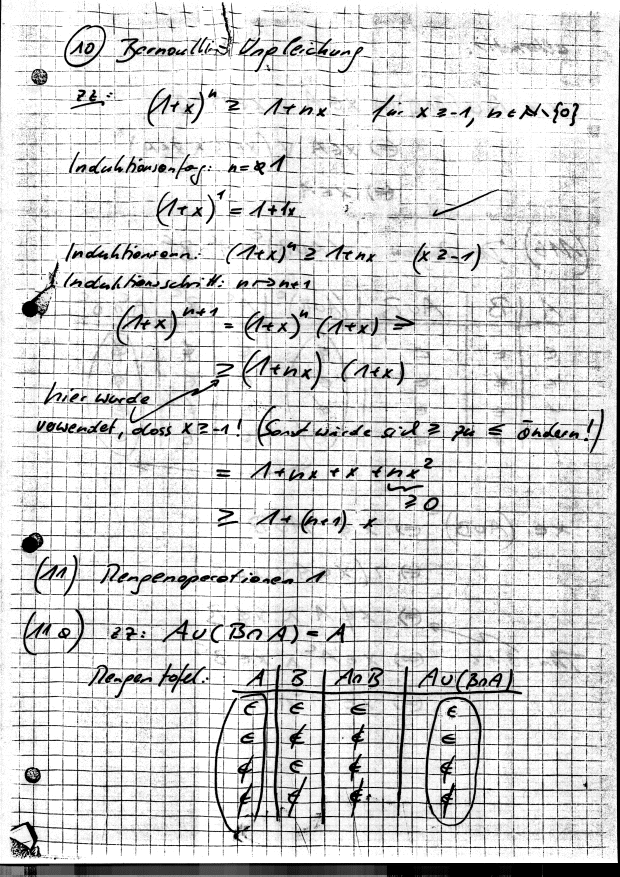 (10) Bernoullis Ungleichung
zz: (1+x)^n ≥ 1+nx für x ≥ -1, n ∈ ℕ\{0}
Induktionsanfang: n = 1
(1+x)^1 = 1+1x ✓
Induktionsann.: (1+x)^n ≥ 1+nx (x ≥ -1)
Induktionsschritt: n → n+1
(1+x)^{n+1} = (1+x)^n (1+x) ≥
≥ (1+nx) (1+x)
hier wurde
verwendet, dass x ≥ -1! (Sonst würde sich ≥ zu ≤ ändern!)
= 1+nx + x + nx²
≥ 0
≥ 1+(n+1) x
(11) Mengenoperationen 1
(11a) zz: A∪(B∩A) = A
Mengentafel: A | B | A∩B | A∪(B∩A)
∈ | ∈ | ∈ | ∈
∈ | ∉ | ∉ | ∈
∉ | ∈ | ∉ | ∉
∉ | ∉ | ∉ | ∉